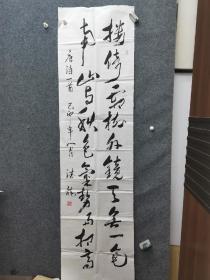 楼倚霜树外镜天无一毫
南山与秋色气势两相高
唐诗一首 年